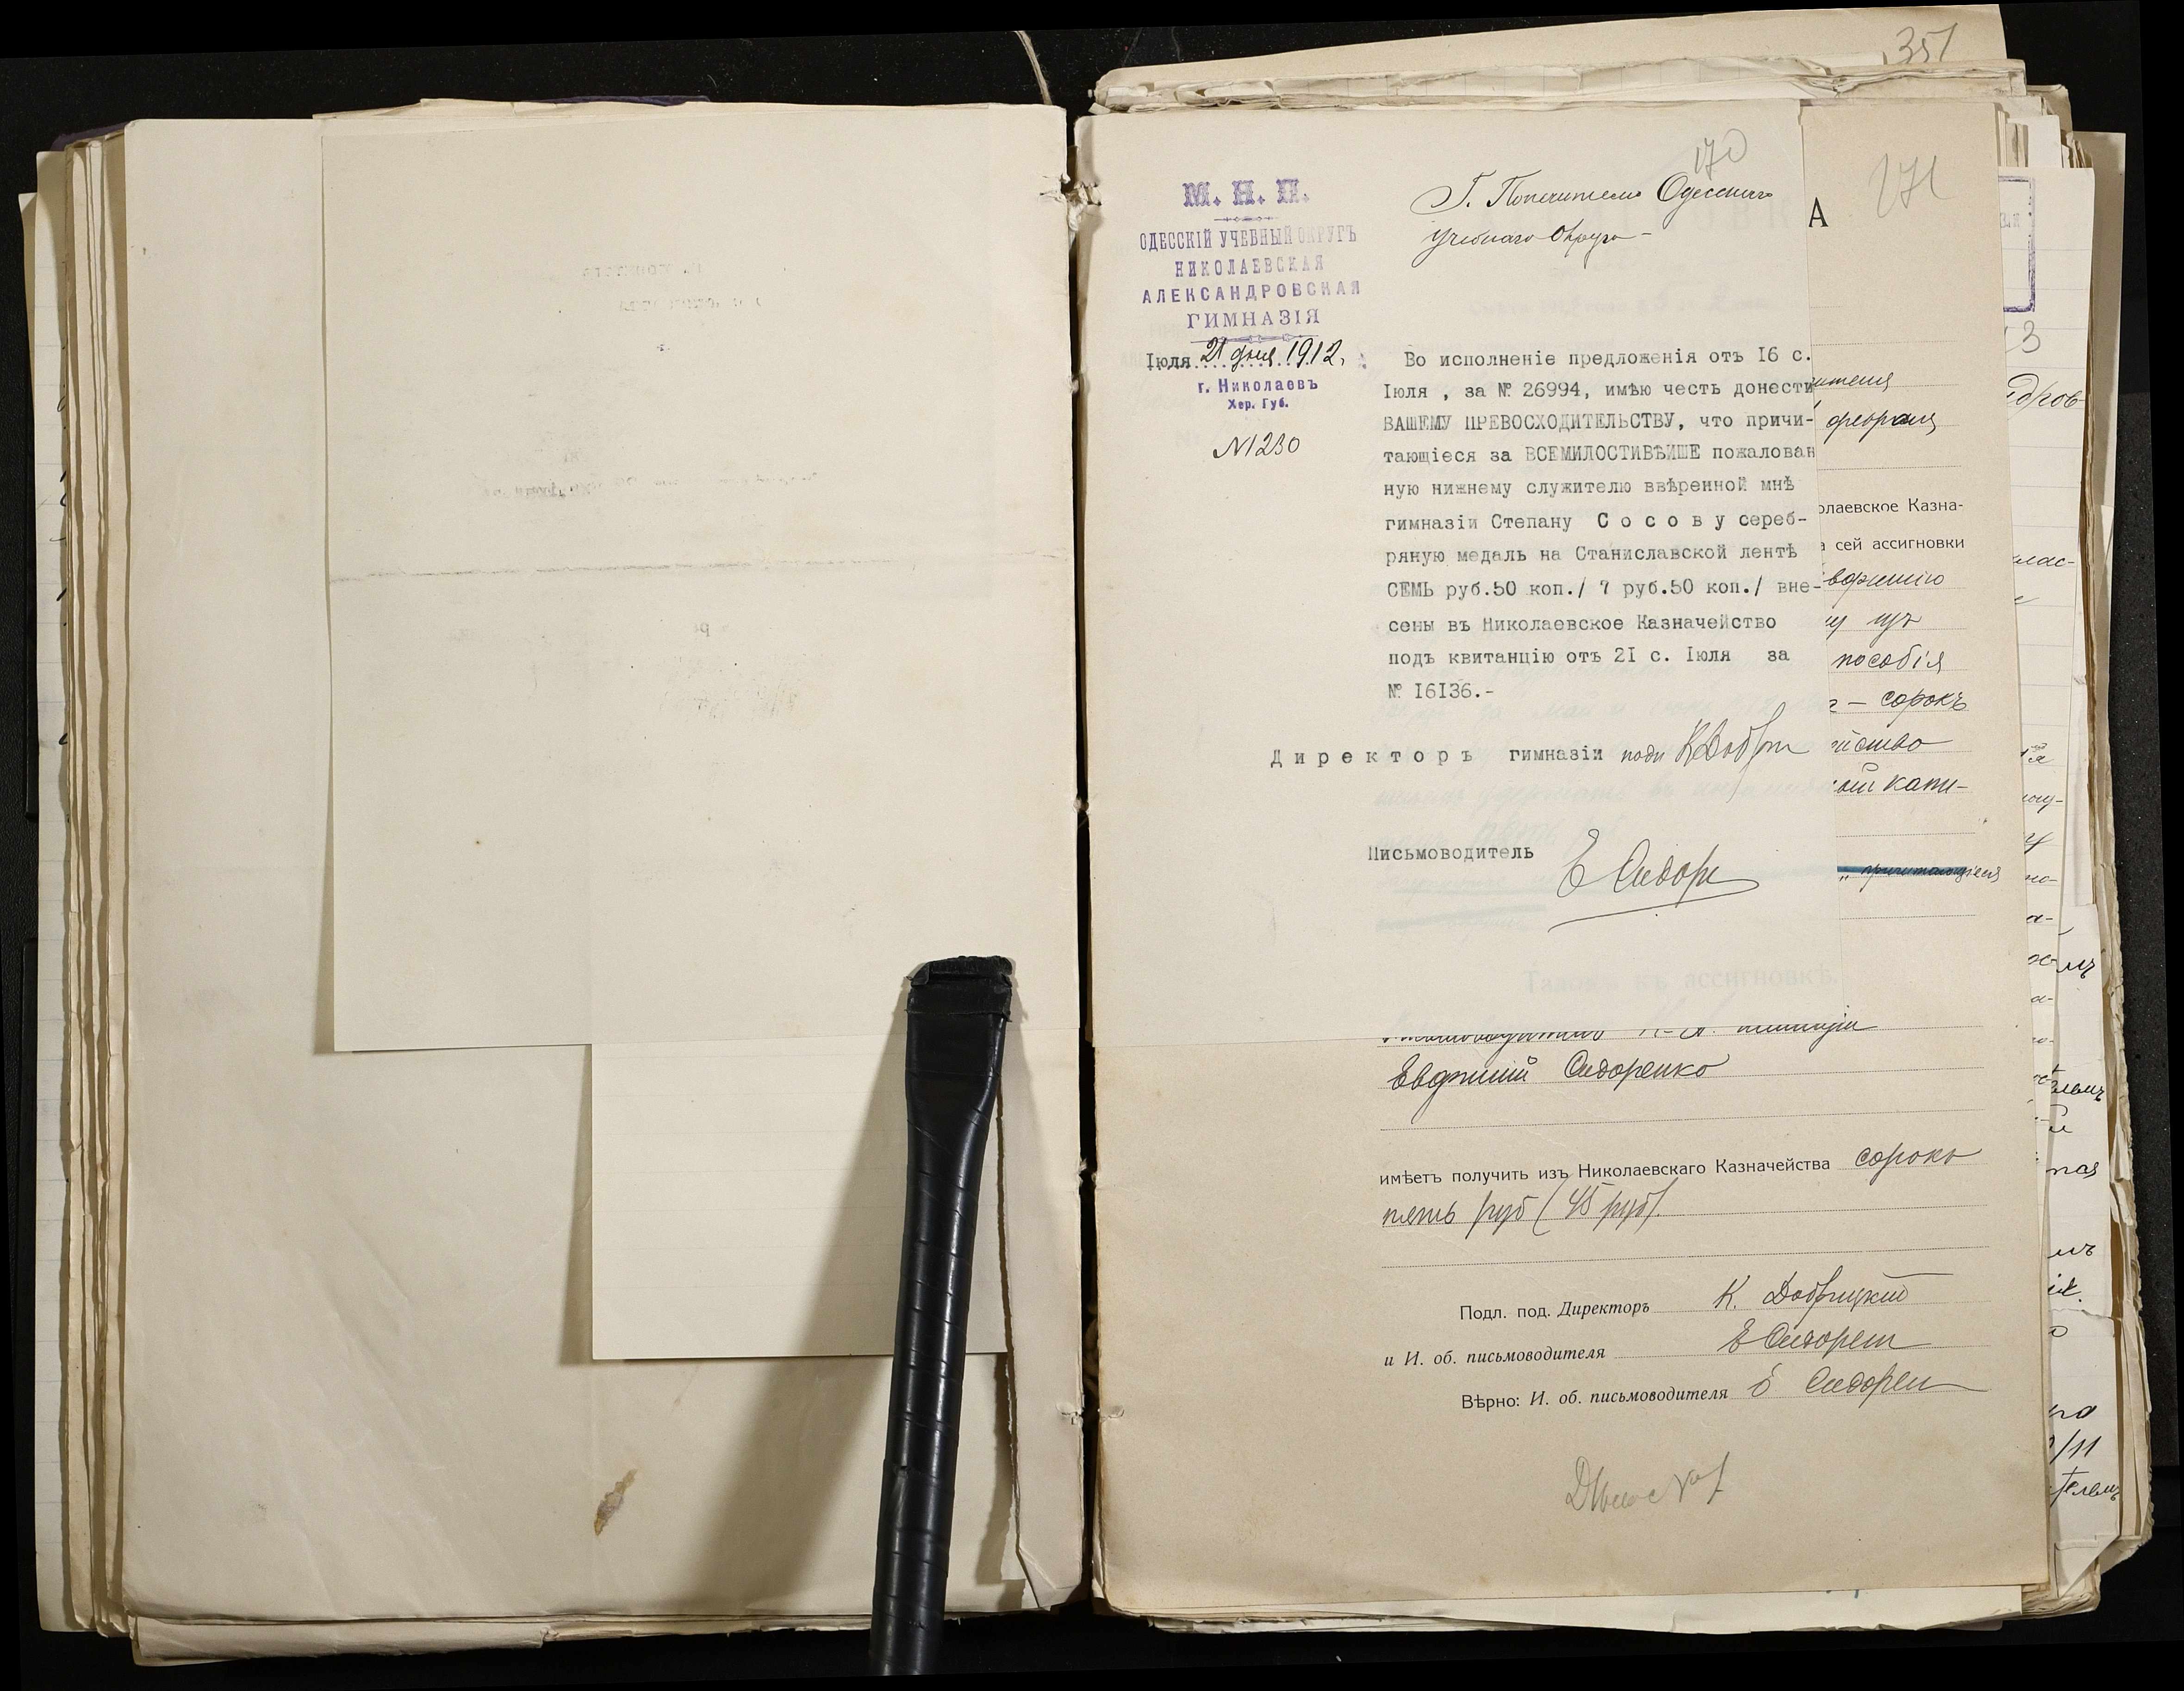 351
170
М. Н. П.
ОДЕССКІЙ УЧЕБНЫЙ ОКРУГЪ
НИКОЛАЕВСКАЯ
АЛЕКСАНДРОВСКАЯ
ГИМНАЗІЯ
Іюля 21 дня 1912 г.
г. Николаевъ
Хер. Губ.
№ 1230
Г. Попечителю Одесскаго
Учебнаго Округа
Во исполненіе предложенія отъ 16 с.
Іюля , за № 26994, имѣю честь донести
ВАШЕМУ ПРЕВОСХОДИТЕЛЬСТВУ, что причи-
тающіеся за ВСЕМИЛОСТИВѢЙШЕ пожалован
ную нижнему служителю ввѣренной мнѣ
гимназіи Степану С о с о в у сереб-
ряную медаль на Станиславской лентѣ
СЕМЬ руб.50 коп./ 7 руб.50 коп./ вне-
сены въ Николаевское Казначейство
подъ квитанцію отъ 2I с. Іюля за
№ I6I36.-
Д и р е к т о р ъ гимназіи подп
Письмоводитель Е Сидоре
171
А
февраля
олаевское Казна-
а сей ассигновки
пособія
— сорокъ
Талонъ къ ассигновкѣ.
Евгеній Сидоренко
имѣетъ получить изъ Николаевскаго Казначейства сорокъ
пять руб (45 руб).
Подл. под. Директоръ К. Добрицкій
и И. об. письмоводителя Е Сидорен
Вѣрно: И. об. письмоводителя Е Сидорен